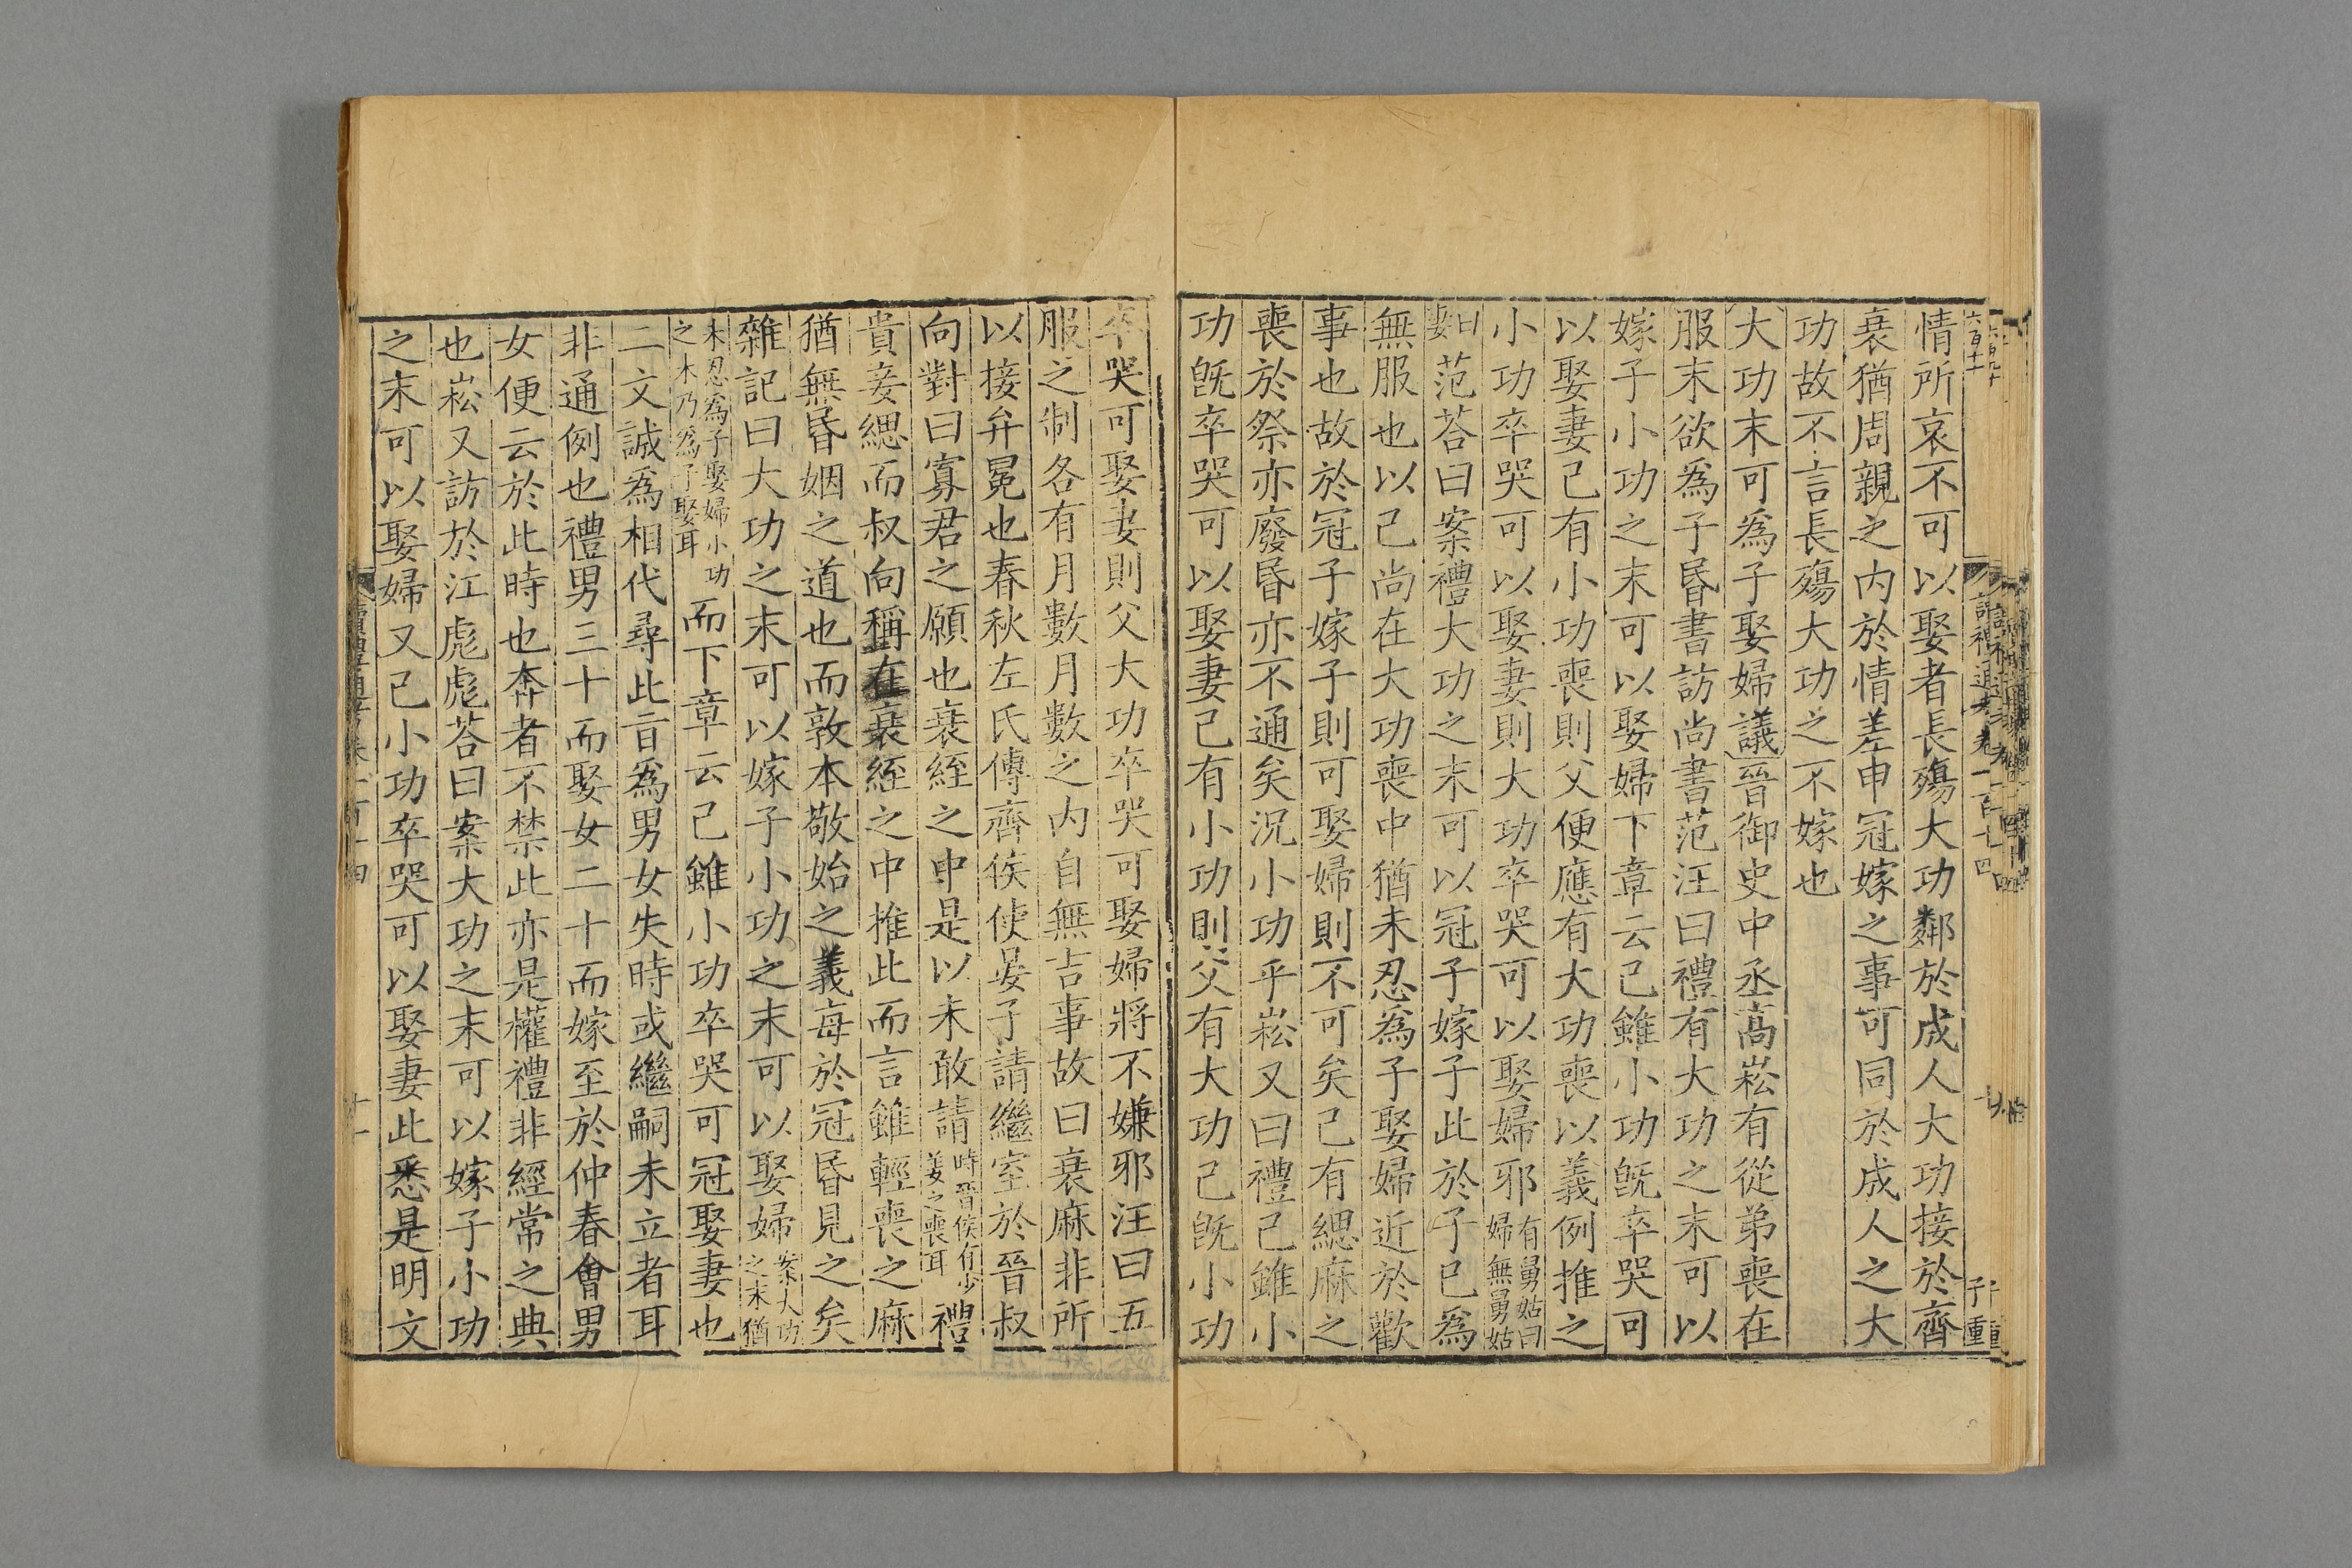 情所哀不可以娶者長殤大功鄰於成人大功接於齊
衰猶周親之内於情差申冠嫁之事可同於成人之大
功故不言長殤大功之不嫁也
大功末可爲子娶婦議晉御史中丞高崧有從弟喪在
服末欲爲子昏書訪尚書范汪曰禮有大功之末可以
嫁子小功之末可以娶婦下章云己雖小功旣卒哭可
以娶妻己有小功喪則父便應有大功喪以義例推之
小功卒哭可以娶妻則大功卒哭可以娶婦邪有舅姑曰婦無舅姑
曰妻范荅曰案禮大功之末可以冠子嫁子此於子已爲
無服也以己尚在大功喪中猶未忍爲子娶婦近於歡
事也故於冠子嫁子則可娶婦則不可矣己有緦麻之
喪於祭亦廢昏亦不通矣況小功乎崧又曰禮己雖小
功旣卒哭可以娶妻己有小功則父有大功己旣小功
卒哭可娶妻則父大功卒哭可娶婦將不嫌邪汪曰五
服之制各有月數月數之内自無吉事故曰衰麻非所
以接弁冕也春秋左氏傳齊侯使晏子請繼室於晉叔
向對曰寡君之願也衰絰之中是以未敢請時晉侯有少姜之喪耳禮
貴妾緦而叔向稱在衰絰之中推此而言雖輕喪之麻
猶無昏姻之道也而敦本敬始之義每於冠昏見之矣
雜記曰大功之末可以嫁子小功之末可以娶婦案大功之末猶
未忍爲子娶婦小功之末乃爲子娶耳而下章云己雖小功卒哭可冠娶妻也
二文誠爲相代尋此旨爲男女失時或繼嗣未立者耳
非通例也禮男三十而娶女二十而嫁至於仲春會男
女便云於此時也奔者不禁此亦是權禮非經常之典
也崧又訪於江彪彪荅曰案大功之末可以嫁子小功
之末可以娶婦又己小功卒哭可以娶妻此悉是明文